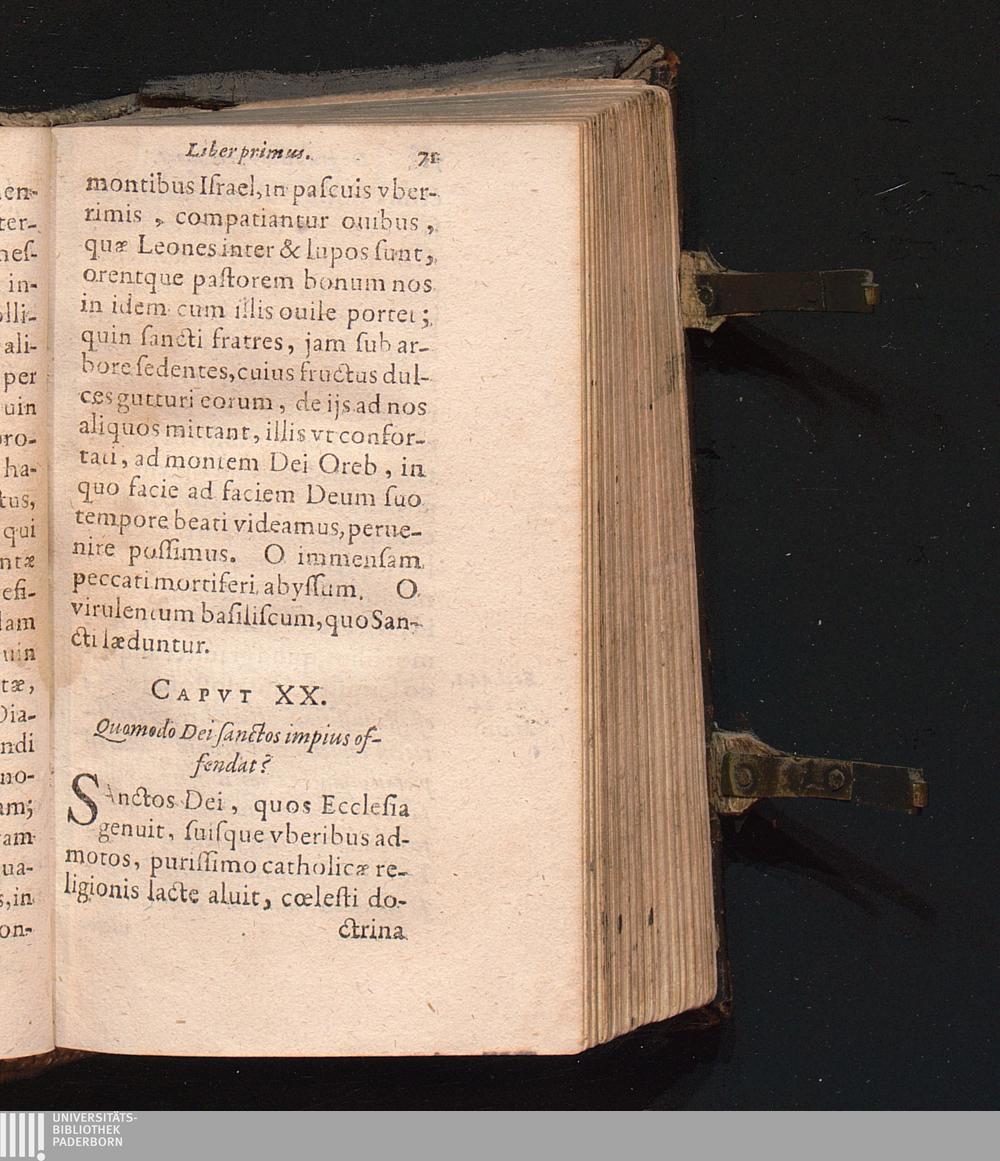 en-
ter-
nes-
in-
olli-
ali-
per
uin
pro-
ha-
tus,
qui
ntæ
efi-
lam
uin
tæ,
Dia-
ndi
no-
am;
ram
ua-
s,in
on-
Liber primus. 71
montibus Iſrael, in paſcuis vber-
rimis, compatiantur ouibus,
quæ Leones inter & lupos ſunt,
orentque paſtorem bonum nos
in idem cum illis ouile portet;
quin ſancti fratres, jam ſub ar-
bore ſedentes, cuius fructus dul-
ces gutturi eorum, de ijs ad nos
aliquos mittant, illis vt confor-
tati, ad montem Dei Oreb, in
quo facie ad faciem Deum ſuo
tempore beati videamus, perue-
nire poſſimus. O immenſam
peccati mortiferi abyſſum. O
virulentum baſiliſcum, quo San-
cti læduntur.
CAPVT XX.
Quomodo Dei ſanctos impius of-
fendat?
SAnctos Dei, quos Eccleſia
genuit, ſuiſque vberibus ad-
motos, puriſſimo catholicæ re-
ligionis lacte aluit, cœleſti do-
ctrina
UNIVERSITÄTS-
BIBLIOTHEK
PADERBORN